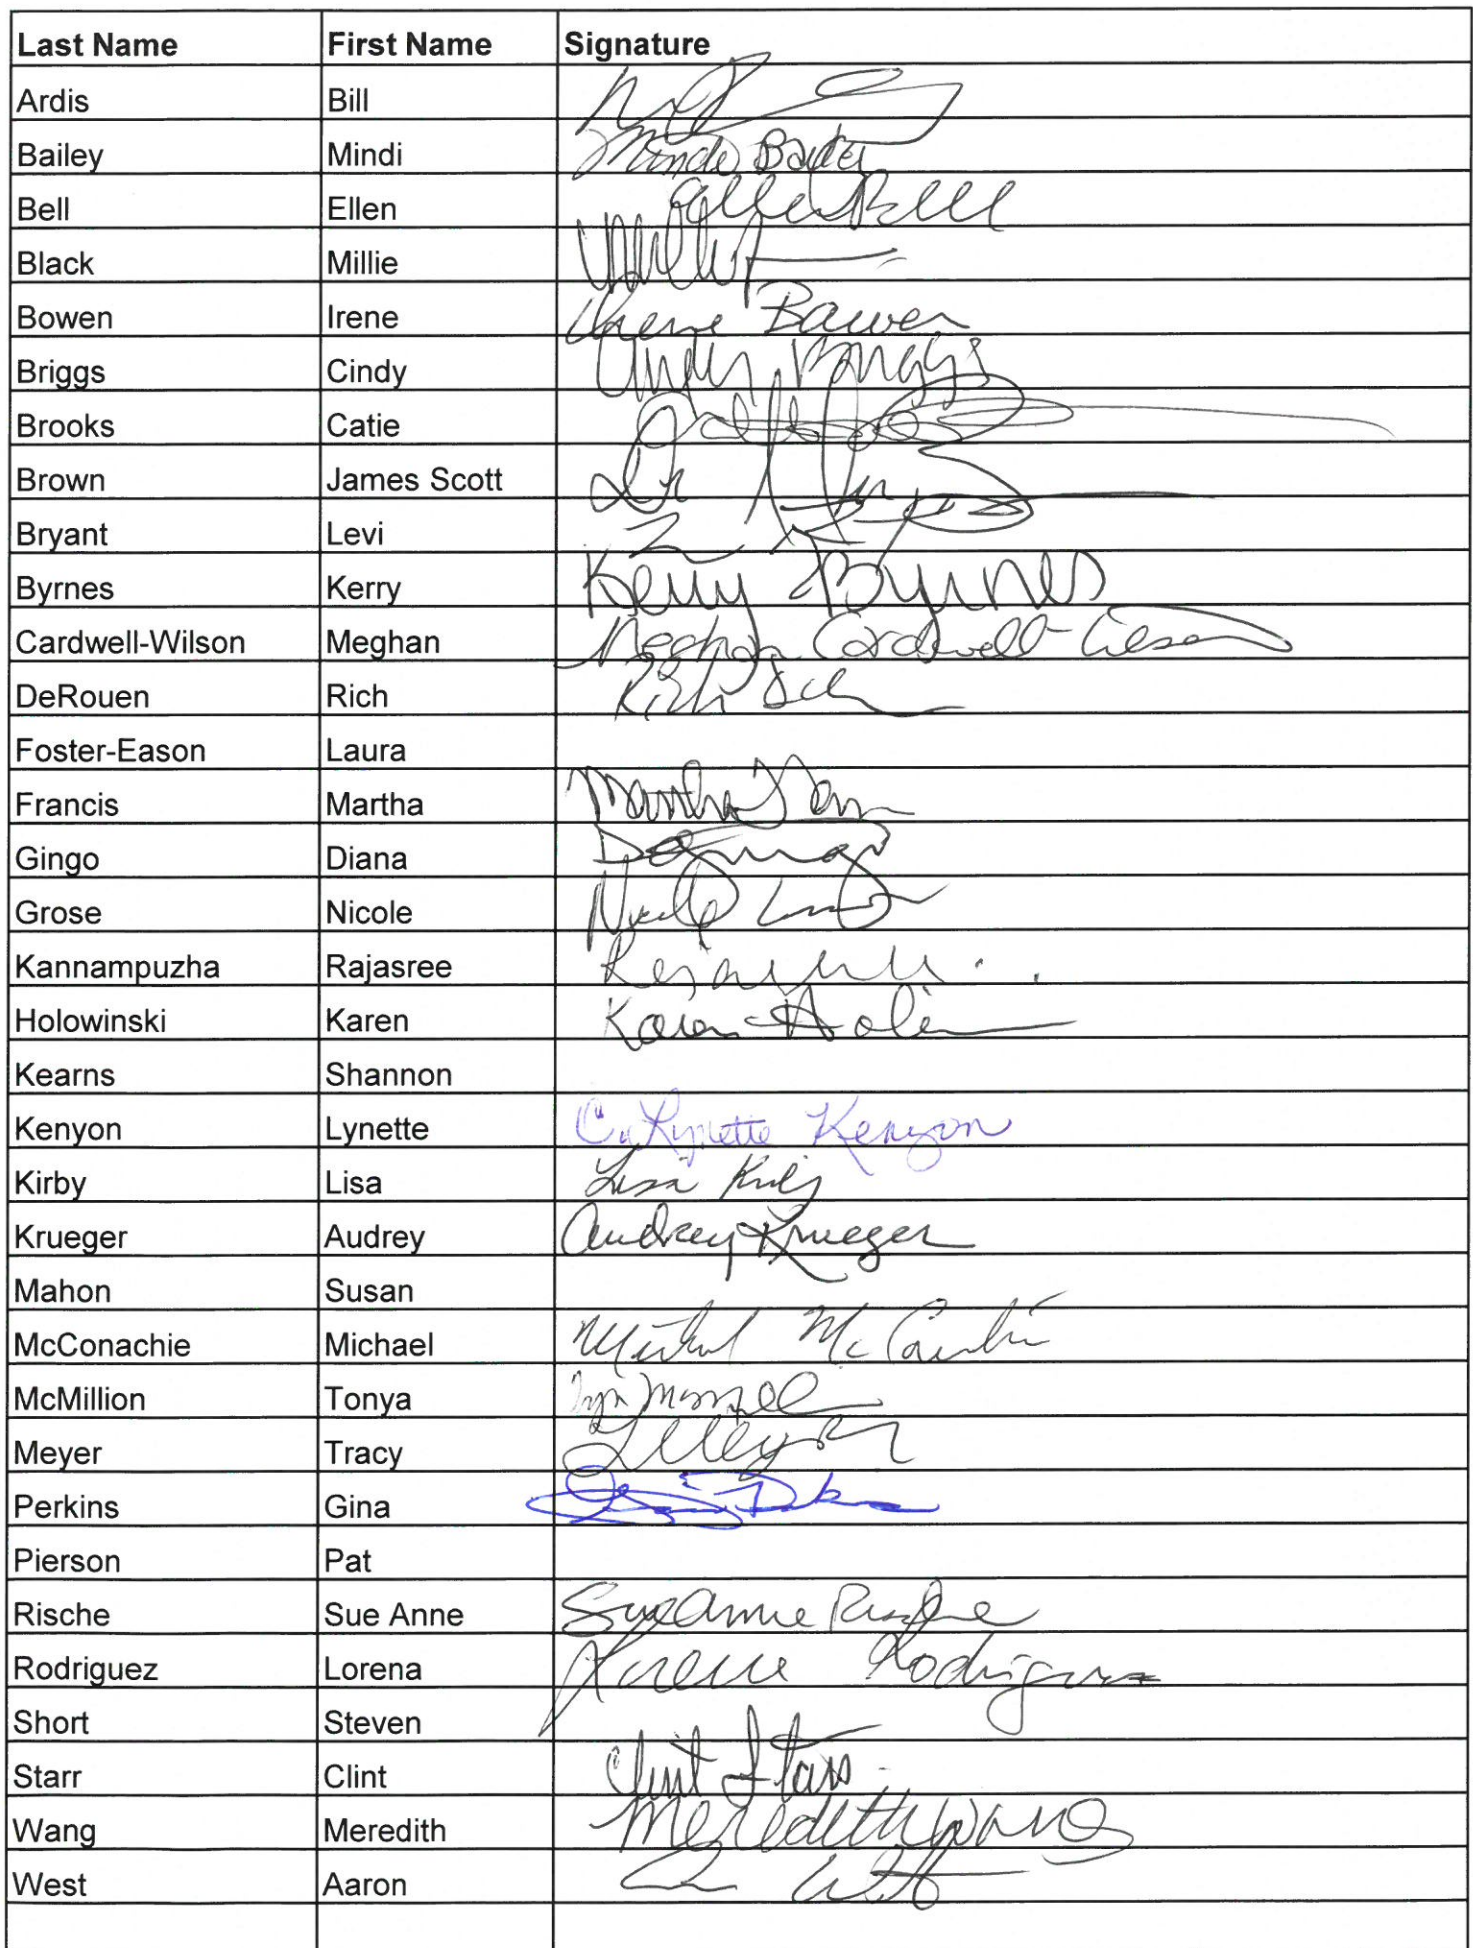 Last Name First Name Signature
Ardis Bill
Bailey Mindi Mindi Bailey
Bell Ellen Ellen Bell
Black Millie
Bowen Irene Irene Bowen
Briggs Cindy Cindy Briggs
Brooks Catie
Brown James Scott
Bryant Levi
Byrnes Kerry Kerry Byrnes
Cardwell-Wilson Meghan Meghan Cardwell-Wilson
DeRouen Rich Rich
Foster-Eason Laura
Francis Martha Martha
Gingo Diana
Grose Nicole Nicole
Kannampuzha Rajasree
Holowinski Karen Karen
Kearns Shannon
Kenyon Lynette C. Lynette Kenyon
Kirby Lisa Lisa Kirby
Krueger Audrey Audrey Krueger
Mahon Susan
McConachie Michael Michael
McMillion Tonya
Meyer Tracy
Perkins Gina
Pierson Pat
Rische Sue Anne Sue Anne Rische
Rodriguez Lorena Lorena Rodriguez
Short Steven
Starr Clint Clint Starr
Wang Meredith Meredith Wang
West Aaron